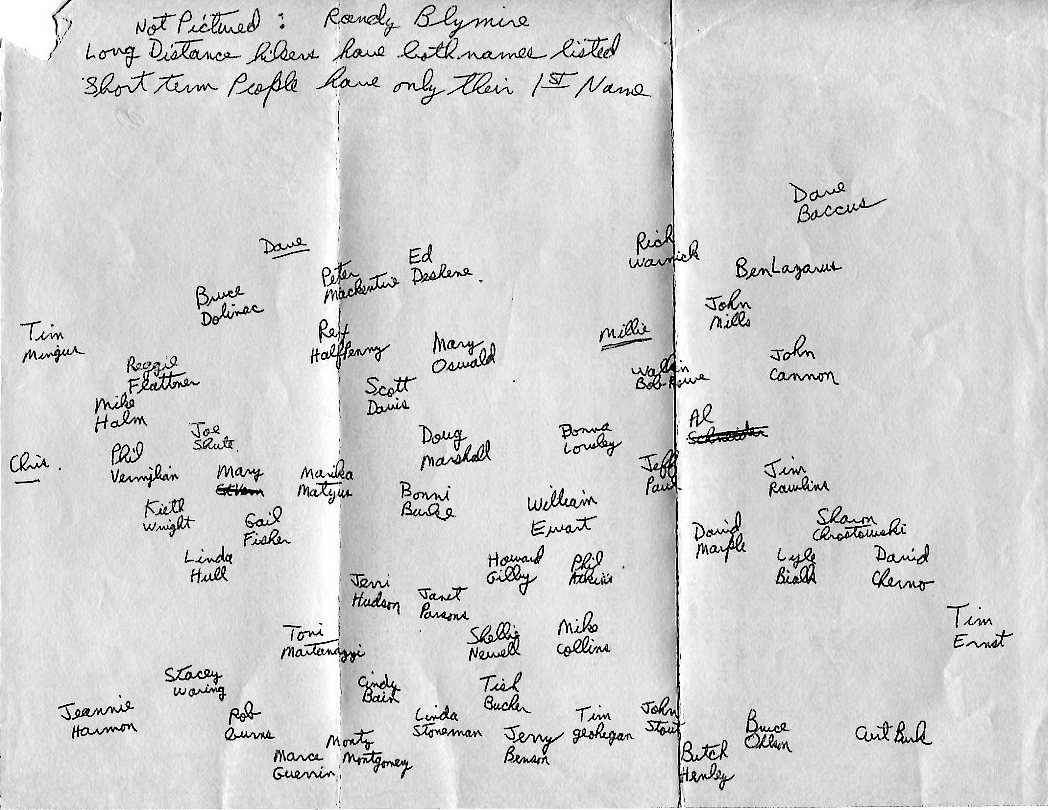 Not Pictured : Randy Blymire
Long Distance hikers have both names listed
Short term People have only their 1ST Name
Dave
Baccus
Dave
Ed
Deshene
Rich
Warnick
Peter
Mackentire
Ben Lazarus
Bruce
Dolinac
John
Mills
Tim
Mingus
Rex
Halfpenny
Mary
Oswald
Millie
John
Cannon
Reggie
Flattner
Scott
Davis
Walkin
Bob Rowe
Mike
Halm
Al
Joe
Shute
Doug
Marshall
Donna
Lousley
Chris
Phil
Vermilian
Mary
Marika
Matyus
Jeff
Paul
Jim
Rawlins
Bonni
Burke
William
Ewart
Kieth
Wright
Gail
Fisher
David
Marple
Sharon
Chrostowski
Linda
Hull
Howard
Gilby
Phil
Adkins
Lyle
Bialk
David
Cherno
Jerri
Hudson
Janet
Parsons
Tim
Ernst
Toni
Shellie
Newell
Mike
Collins
Stacey
Waring
Cindy
Bain
Tish
Bucker
Jeannie
Harmon
Rob
Burns
Linda
Stoneman
Tim
Geohegan
John
Stout
Bruce
Ohlson
Curt Burk
Jerry
Benson
Monty
Montgomery
Marce
Guerrin
Butch
Henley